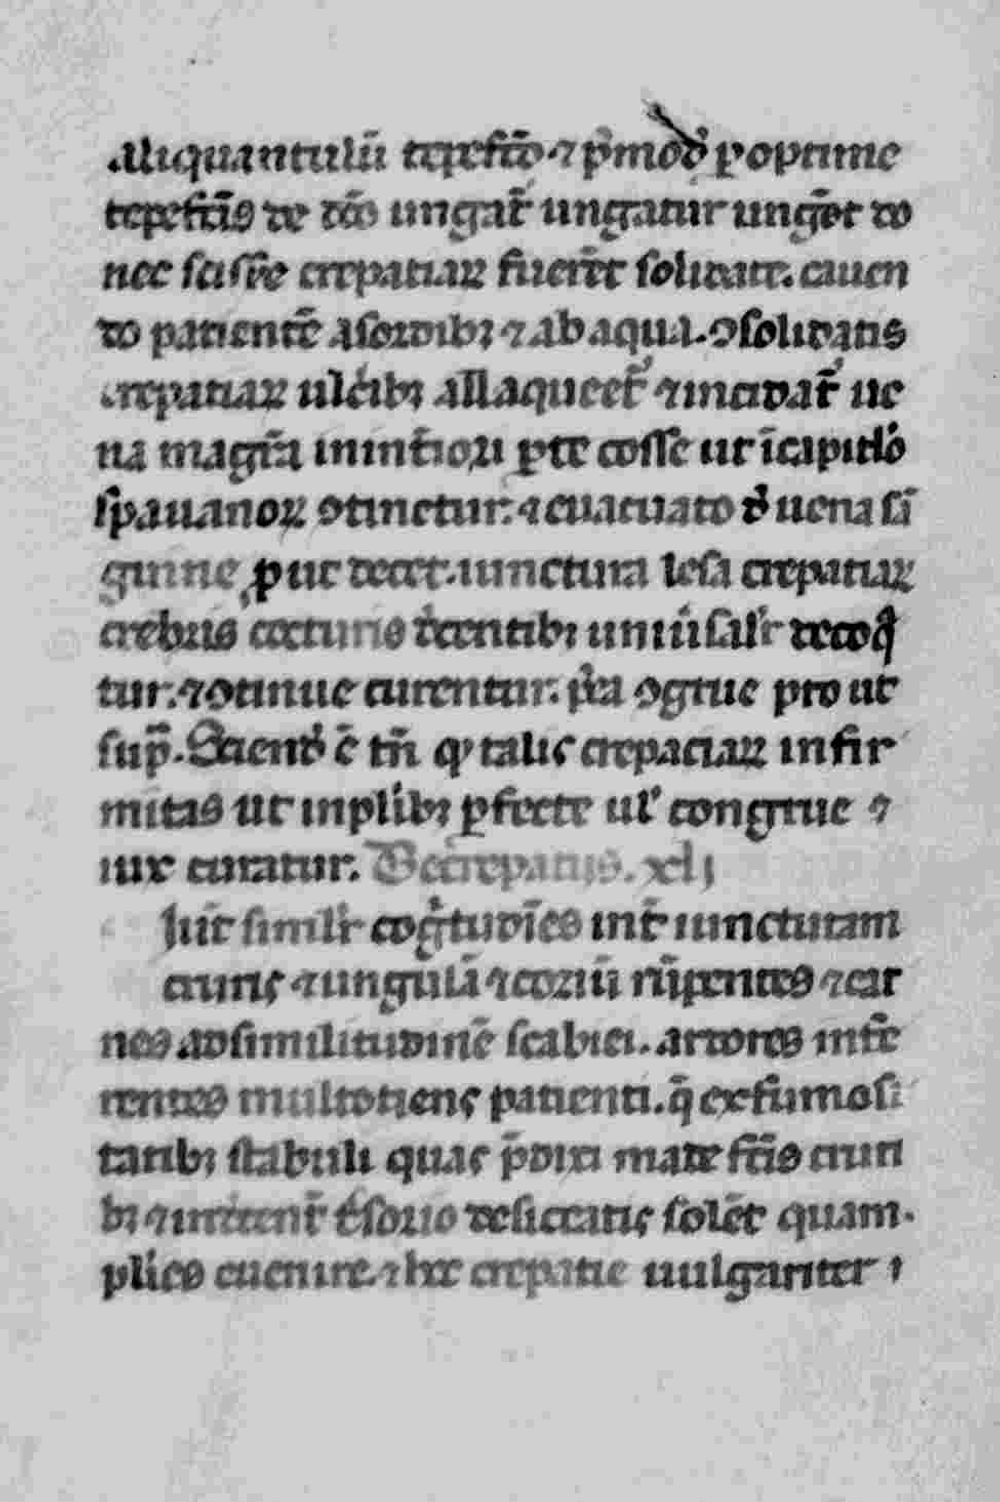 aliquantulũ tepefc̃o ⁊ pͥmodͦ ꝑoptime
tepefcĩs de dc̃o ungat̃ ungatur ungẽt do
nec sciss̃e crepatiaꝝ fuerĩt solidate. cauen
do patientẽ a sordibꝫ ⁊ ab aqua. ꝯsolidatis
crepatiaꝝ ulc̃ibꝫ allaqueet᷑ ⁊ incidat᷑ ue
na magr̃a in int̃iori ꝑte cosse ut ĩcapitl̃o
spauanoꝝ ꝯtinetur. ⁊ euacuato ð uena sã
guine ꝓut decet. iunctura lesa crepatiaꝝ
crebris cocturis dc̃entibꝫ uniũsalr̃ decoq̃
tur. ⁊ ꝯtinue curentur. pͦea ꝯgrue prout
sup̃. Sciendͦ ẽ tñ ꝙ talis crepaciaꝝ infir
mitas ut in plĩbꝫ ꝑfecte ul̃ congrue ⁊
uix curatur. De crepatijs. xlj
fiũt similr̃ cogͣtudĩes int̃ iuncturam
cruris ⁊ ungulã ⁊ coriũ rũpentes ⁊ car
nes ad similitudinẽ scabiei. ardores infẽ
rentes multotiens patienti. q̃ ex fumosi
tatibꝫ stabuli quas p̃dixi mate fc̃is cruri
bꝫ desiccatis solẽt quam
plĩes euenire. ⁊ hec crepatie uulgariter